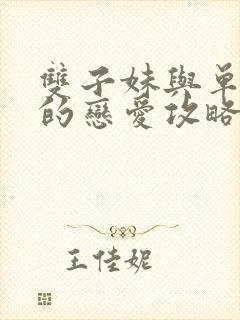 雙子妹與單
的戀愛攻略
王佳妮